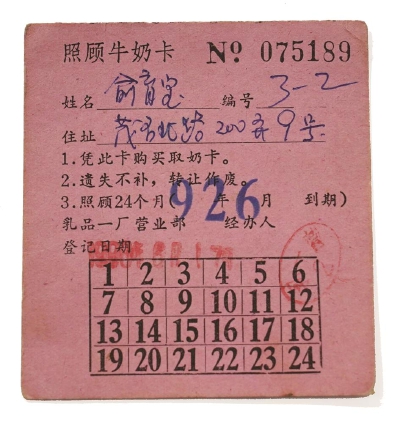 照顾牛奶卡 Nº 075189
姓名 俞育宝 编号 3-2
住址 茂名北路200弄9号
1.凭此卡购买取奶卡。
2.遗失不补，转让作废。
3.照顾24个月( 年 月 到期)
926
乳品一厂营业部 经办人
登记日期
1 2 3 4 5 6
7 8 9 10 11 12
13 14 15 16 17 18
19 20 21 22 23 24